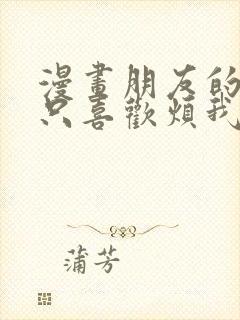 漫畫朋友的
只喜歡煩我
蒲芳